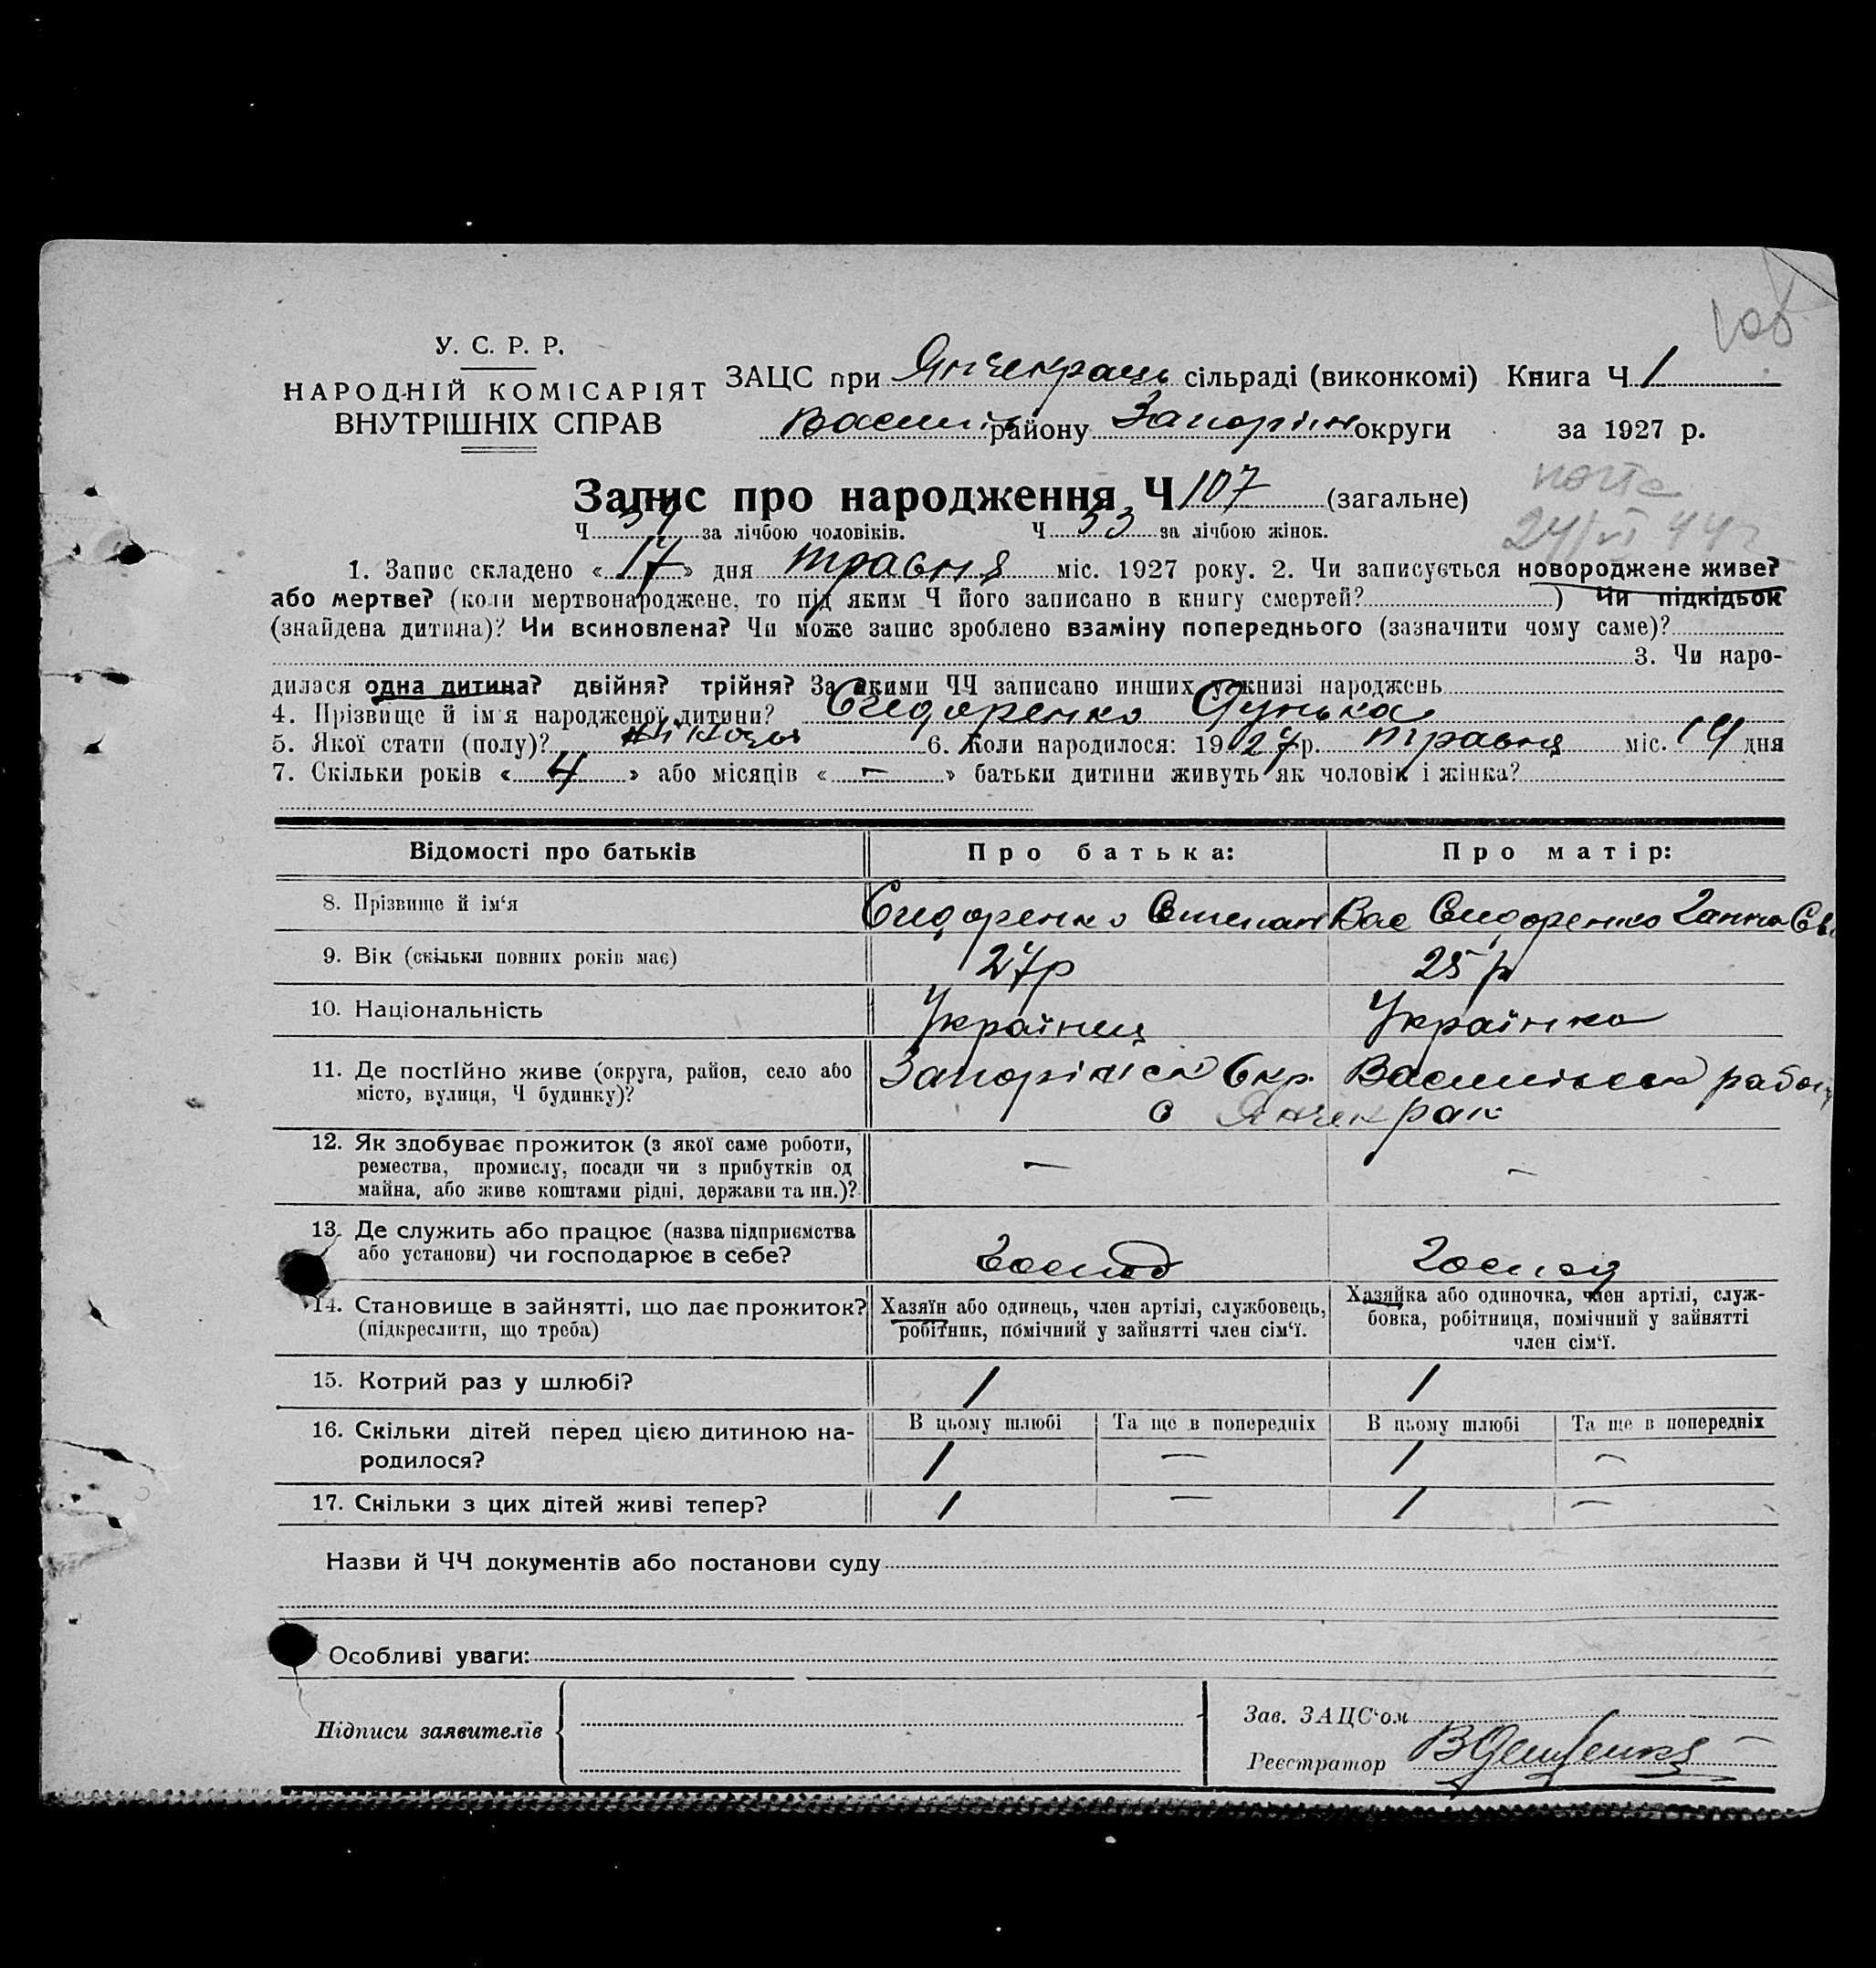 У. С. Р. Р.
НАРОДНІЙ КОМІСАРІЯТ
ВНУТРІШНІХ СПРАВ
ЗАЦС при Янчекраць сільраді (виконкомі) Книга Ч. 1
Василів району Запоріж округи за 1927 р.
Запис про народження Ч 107 (загальне)
24/VI 44 г
Ч. за лічбою чоловіків. Ч 53 за лічбою жінок.
1. Запис складено «17» дня травня міс. 1927 року. 2. Чи записується новороджене живе?
або мертве? (коли мертвонароджене, то під яким Ч його записано в книгу смертей?) Чи підкідьок
(знайдена дитина)? Чи всиновлена? Чи може запис зроблено взаміну попереднього (зазначити чому саме)?
3. Чи наро-
дилася одна дитина? двійня? трійня? За якими ЧЧ записано инших у книзі народжень
4. Прізвище й ім'я народженої дитини? Сидоренко Дунька
5. Якої стати (полу)? жіноча 6. Коли народилося: 1927 р. травня міс. 14 дня
7. Скільки років «4» або місяців «—» батьки дитини живуть як чоловік і жінка?
Відомості про батьків Про батька: Про матір:
8. Прізвище й ім'я Сидоренко Степан Вас Сидоренко Ганна
9. Вік (скільки повних років має) 27 р 25 р
10. Національність Українец Українка
11. Де постійно живе (округа, район, село або Запоріжск Окр. Васильевск район
місто, вулиця, Ч будинку)? с Янчекрак
12. Як здобуває прожиток (з якої саме роботи, — —
ремества, промислу, посади чи з прибутків од
майна, або живе коштами рідні, держави та ин.)?
13. Де служить або працює (назва підприємства
або установи) чи господарює в себе? Господ Господ
14. Становище в зайнятті, що дає прожиток? Хазяїн або одинець, член артілі, службовець, Хазяйка або одиночка, член артілі, служ-
(підкреслити, що треба) робітник, помічний у зайнятті член сім'ї. бовка, робітниця, помічний у зайнятті
член сім'ї.
15. Котрий раз у шлюбі? 1 1
16. Скільки дітей перед цією дитиною на- В цьому шлюбі Та ще в попередніх В цьому шлюбі Та ще в попередніх
родилося? 1 — 1 —
17. Скільки з цих дітей живі тепер? 1 — 1 —
Назви й ЧЧ документів або постанови суду
Особливі уваги:
Підписи заявителів
Зав. ЗАЦС'ом
Реєстратор